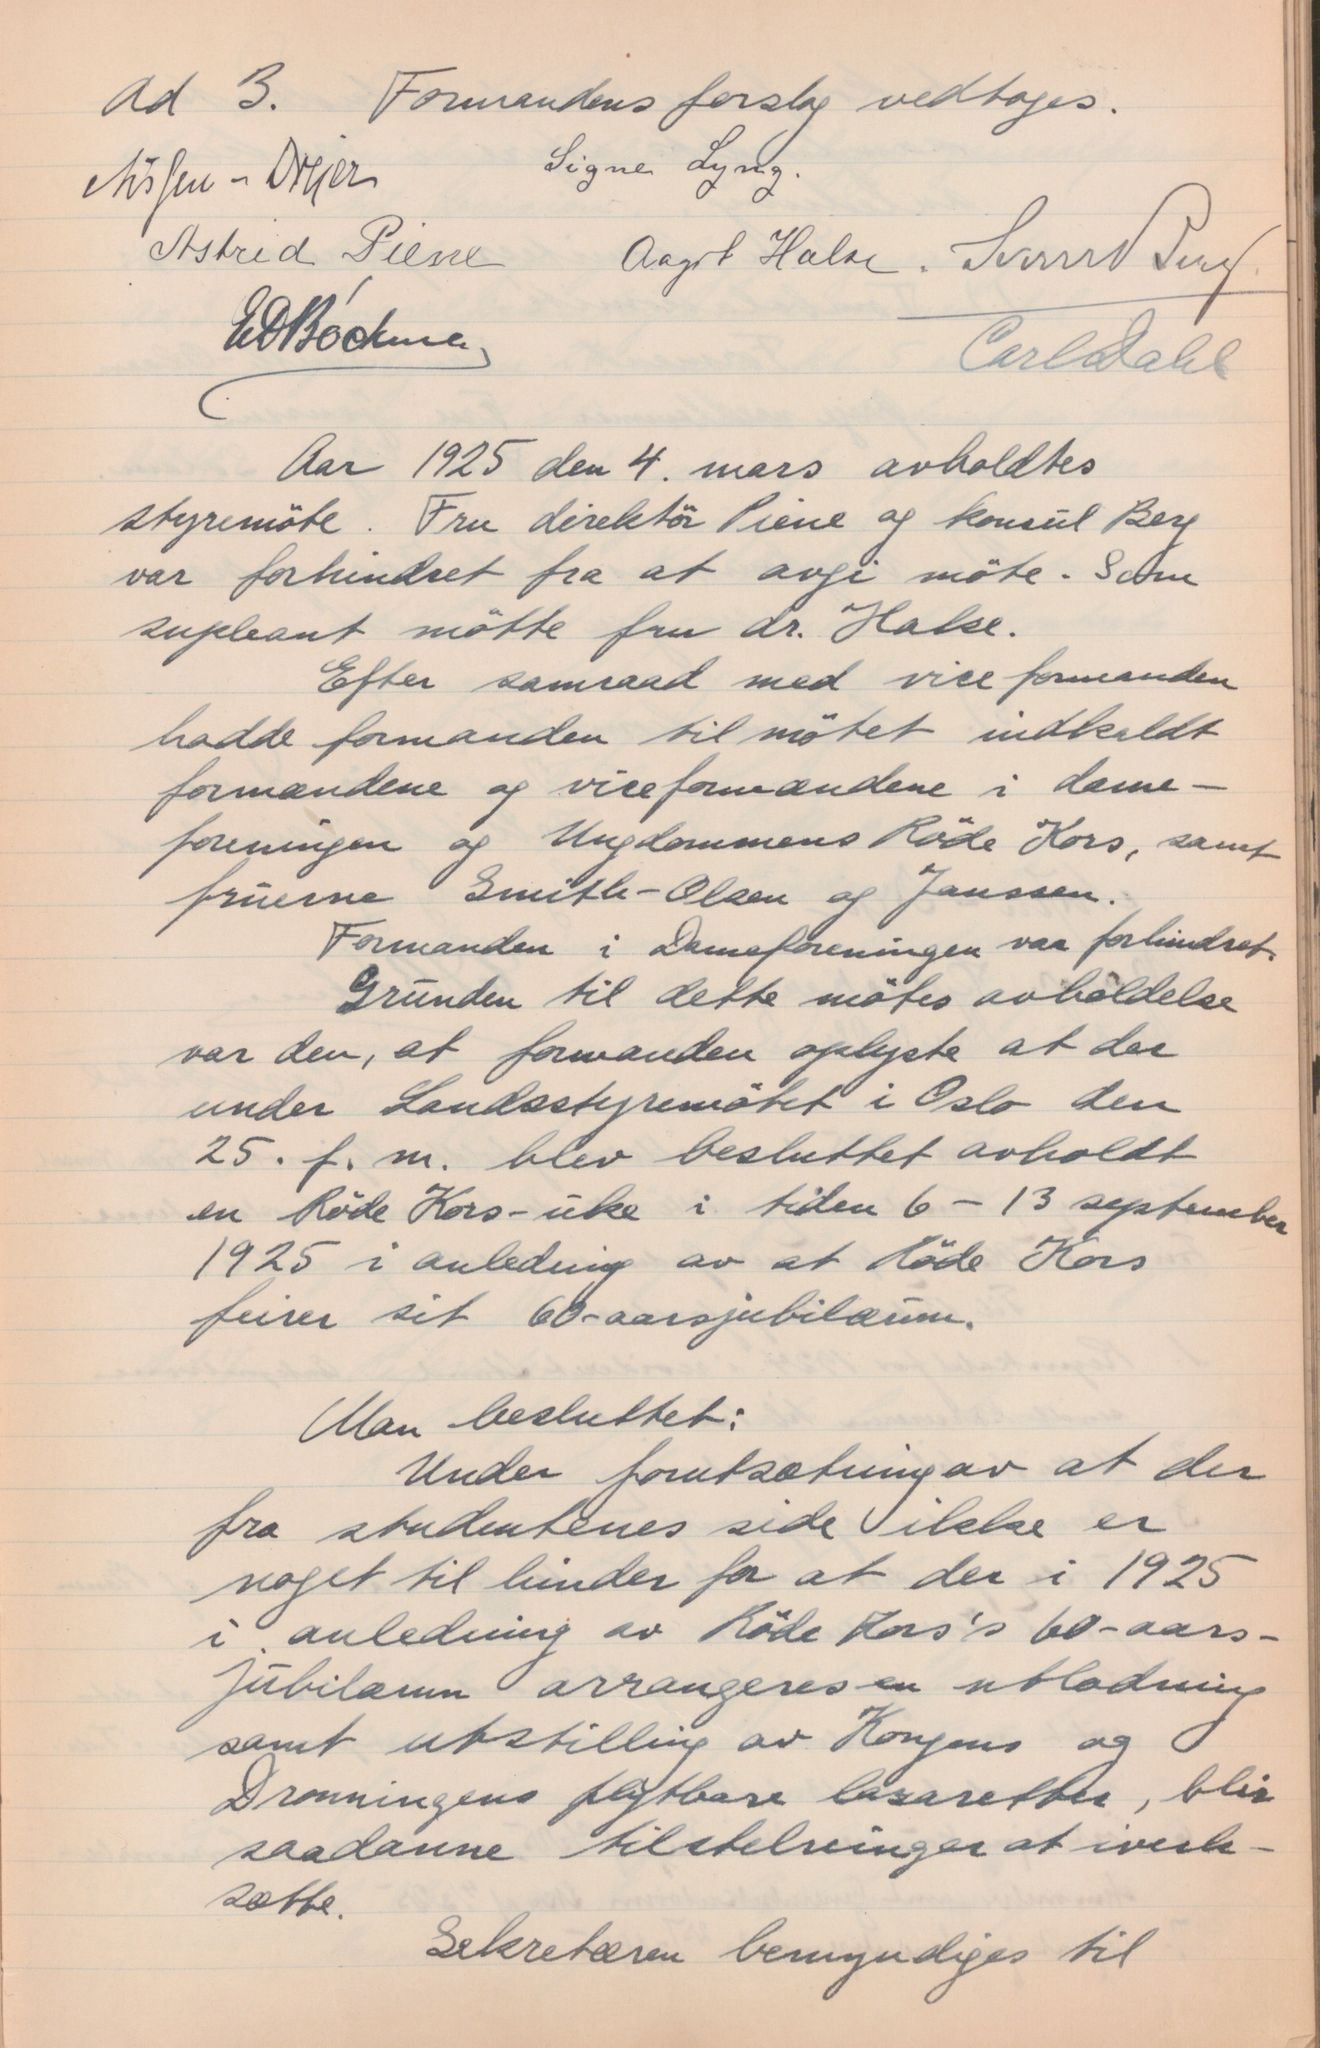 Ad B. Formandens forslag vedtages.
Signe Lyng.
Astrid Piene Aagot Halse.
Carl Dahl
Aar 1925 den 4. mars avholdtes
styremöte. Fru direktör Piene og konsul Berg
var forhindret fra at avgi möte. Som
supleant mötte fru dr. Halse.
Efter samraad med viceformanden
hadde formanden til mötet indkaldt
formændene og viceformændene i dame-
foreningen og Ungdommens Röde Kors, samt
fruerne Smith-Olsen og Janssen.
Formanden i Dameforeningen var forhindret.
Grunden til dette mötes avholdelse
var den, at formanden oplyste at der
under Landsstyremötet i Oslo den
25. f. m. blev besluttet avholdt
en Röde Kors-uke i tiden 6-13 september
1925 i anledning av at Röde Kors
feirer sit 60-aarsjubilæum.
Man besluttet:
Under forutsætning av at der
fra studentenes side ikke er
noget til hinder for at der i 1925
i anledning av Röde Kors's 60-aars-
jubilæum arrangeres en utlodning
samt utstilling av Kongens og
Dronningens flytbare lasaretter, blir
saadanne tilstelninger at iverk-
sætte.
Sekretæren bemyndiges til